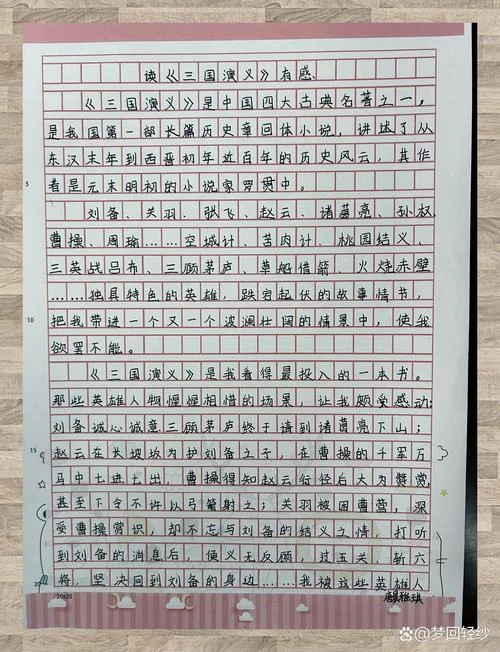 读《三国演义》有感
《三国演义》是中国四大古典名著之一，
是我国第一部长篇历史章回体小说，讲述了从
东汉末年到西晋初年近百年的历史风云，其作
者是元末明初的小说家罗贯中。
5
刘备、关羽、张飞、赵云、诸葛亮、孙权、
曹操、周瑜……空城计、苦肉计、桃园结义、
三英战吕布、三顾茅庐、草船借箭、火烧赤壁
……独具特色的英雄，跌宕起伏的故事情节，
10
把我带进一个又一个波澜壮阔的情景中，使我
欲罢不能。
《三国演义》是我看得最投入的一本书。
那些英雄人物惺惺相惜的场景，让我颇受感动：
刘备诚心诚意三顾茅庐终于请到诸葛亮下山；
15
赵云在长坂坡为护刘备之子，在曹操的千军万
马中七进七出，曹操得知赵云行径后大为赞赏，
甚至下令不许以弓箭射之；关羽被困曹营，深
受曹操赏识，却不忘与刘备的结义之情，打听
到刘备的消息后，便义无反顾，过五关，斩六
20
将，坚决回到刘备的身边……我被这些英雄人
20x20
雅琪
百度 @梦回轻纱